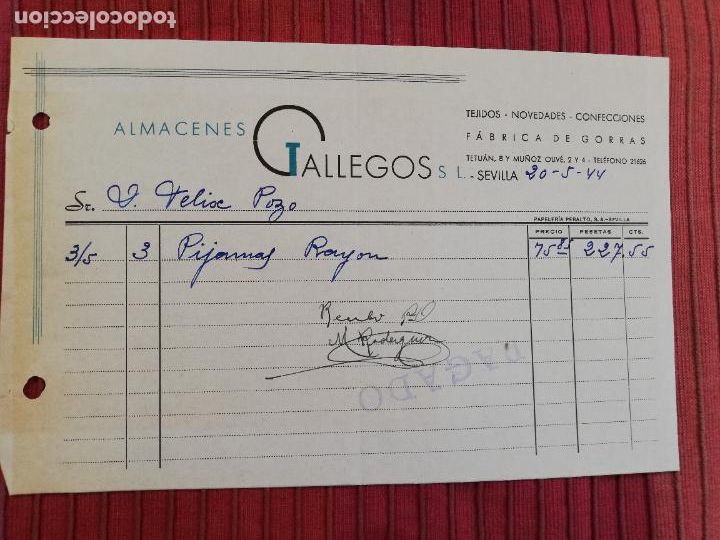 todocoleccion
ALMACENES GALLEGOS S L.
TEJIDOS - NOVEDADES - CONFECCIONES
FÁBRICA DE GORRAS
TETUÁN, 8 Y MUÑOZ OLIVÉ, 2 Y 4 - TELÉFONO 21626
SEVILLA 20-5-44
Sr. D. Felix Pozo
PAPELERÍA PERALTO, S. A. - SEVILLA
PRECIO PESETAS CTS.
3/5 3 Pijamas Rayon 75 85 227 55
M. Rodriguez
PAGADO